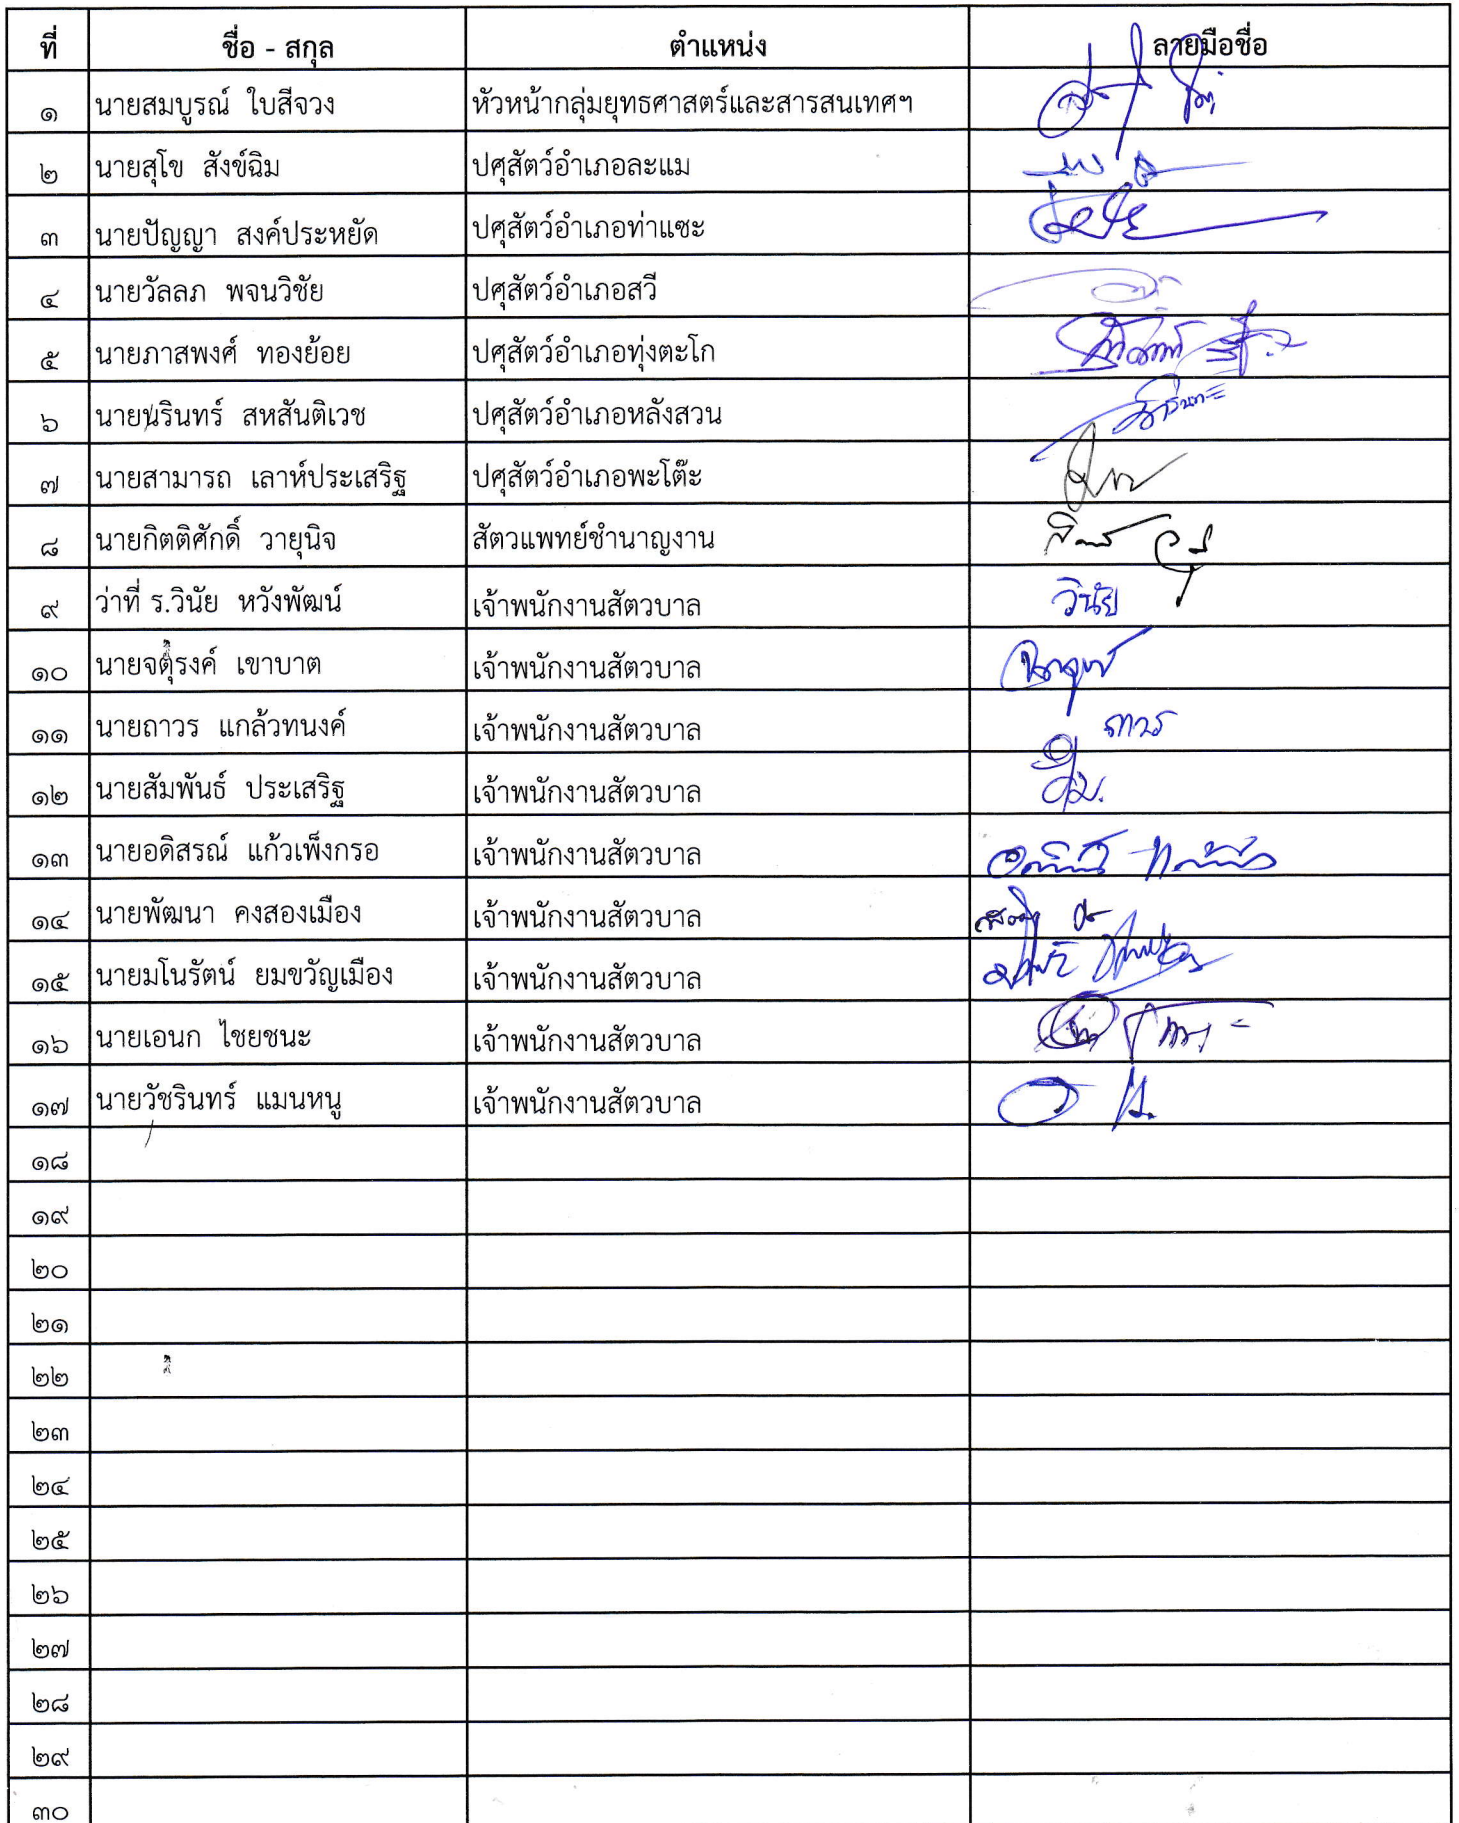 ที่ ชื่อ - สกุล ตำแหน่ง ลายมือชื่อ
๑ นายสมบูรณ์ ใบสีจวง หัวหน้ากลุ่มยุทธศาสตร์และสารสนเทศฯ
๒ นายสุโข สังข์ฉิม ปศุสัตว์อำเภอละแม
๓ นายปัญญา สงค์ประหยัด ปศุสัตว์อำเภอท่าแซะ
๔ นายวัลลภ พจนวิชัย ปศุสัตว์อำเภอสวี
๕ นายภาสพงศ์ ทองย้อย ปศุสัตว์อำเภอทุ่งตะโก
๖ นายนรินทร์ สหสันติเวช ปศุสัตว์อำเภอหลังสวน
๗ นายสามารถ เลาห์ประเสริฐ ปศุสัตว์อำเภอพะโต๊ะ
๘ นายกิตติศักดิ์ วายุนิจ สัตวแพทย์ชำนาญงาน
๙ ว่าที่ ร.วินัย หวังพัฒน์ เจ้าพนักงานสัตวบาล วินัย
๑๐ นายจตุรงค์ เขาบาต เจ้าพนักงานสัตวบาล
๑๑ นายถาวร แกล้วทนงค์ เจ้าพนักงานสัตวบาล ถาวร
๑๒ นายสัมพันธ์ ประเสริฐ เจ้าพนักงานสัตวบาล
๑๓ นายอดิสรณ์ แก้วเพ็งกรอ เจ้าพนักงานสัตวบาล
๑๔ นายพัฒนา คงสองเมือง เจ้าพนักงานสัตวบาล
๑๕ นายมโนรัตน์ ยมขวัญเมือง เจ้าพนักงานสัตวบาล
๑๖ นายเอนก ไชยชนะ เจ้าพนักงานสัตวบาล
๑๗ นายวัชรินทร์ แมนหนู เจ้าพนักงานสัตวบาล
๑๘
๑๙
๒๐
๒๑
๒๒
๒๓
๒๔
๒๕
๒๖
๒๗
๒๘
๒๙
๓๐